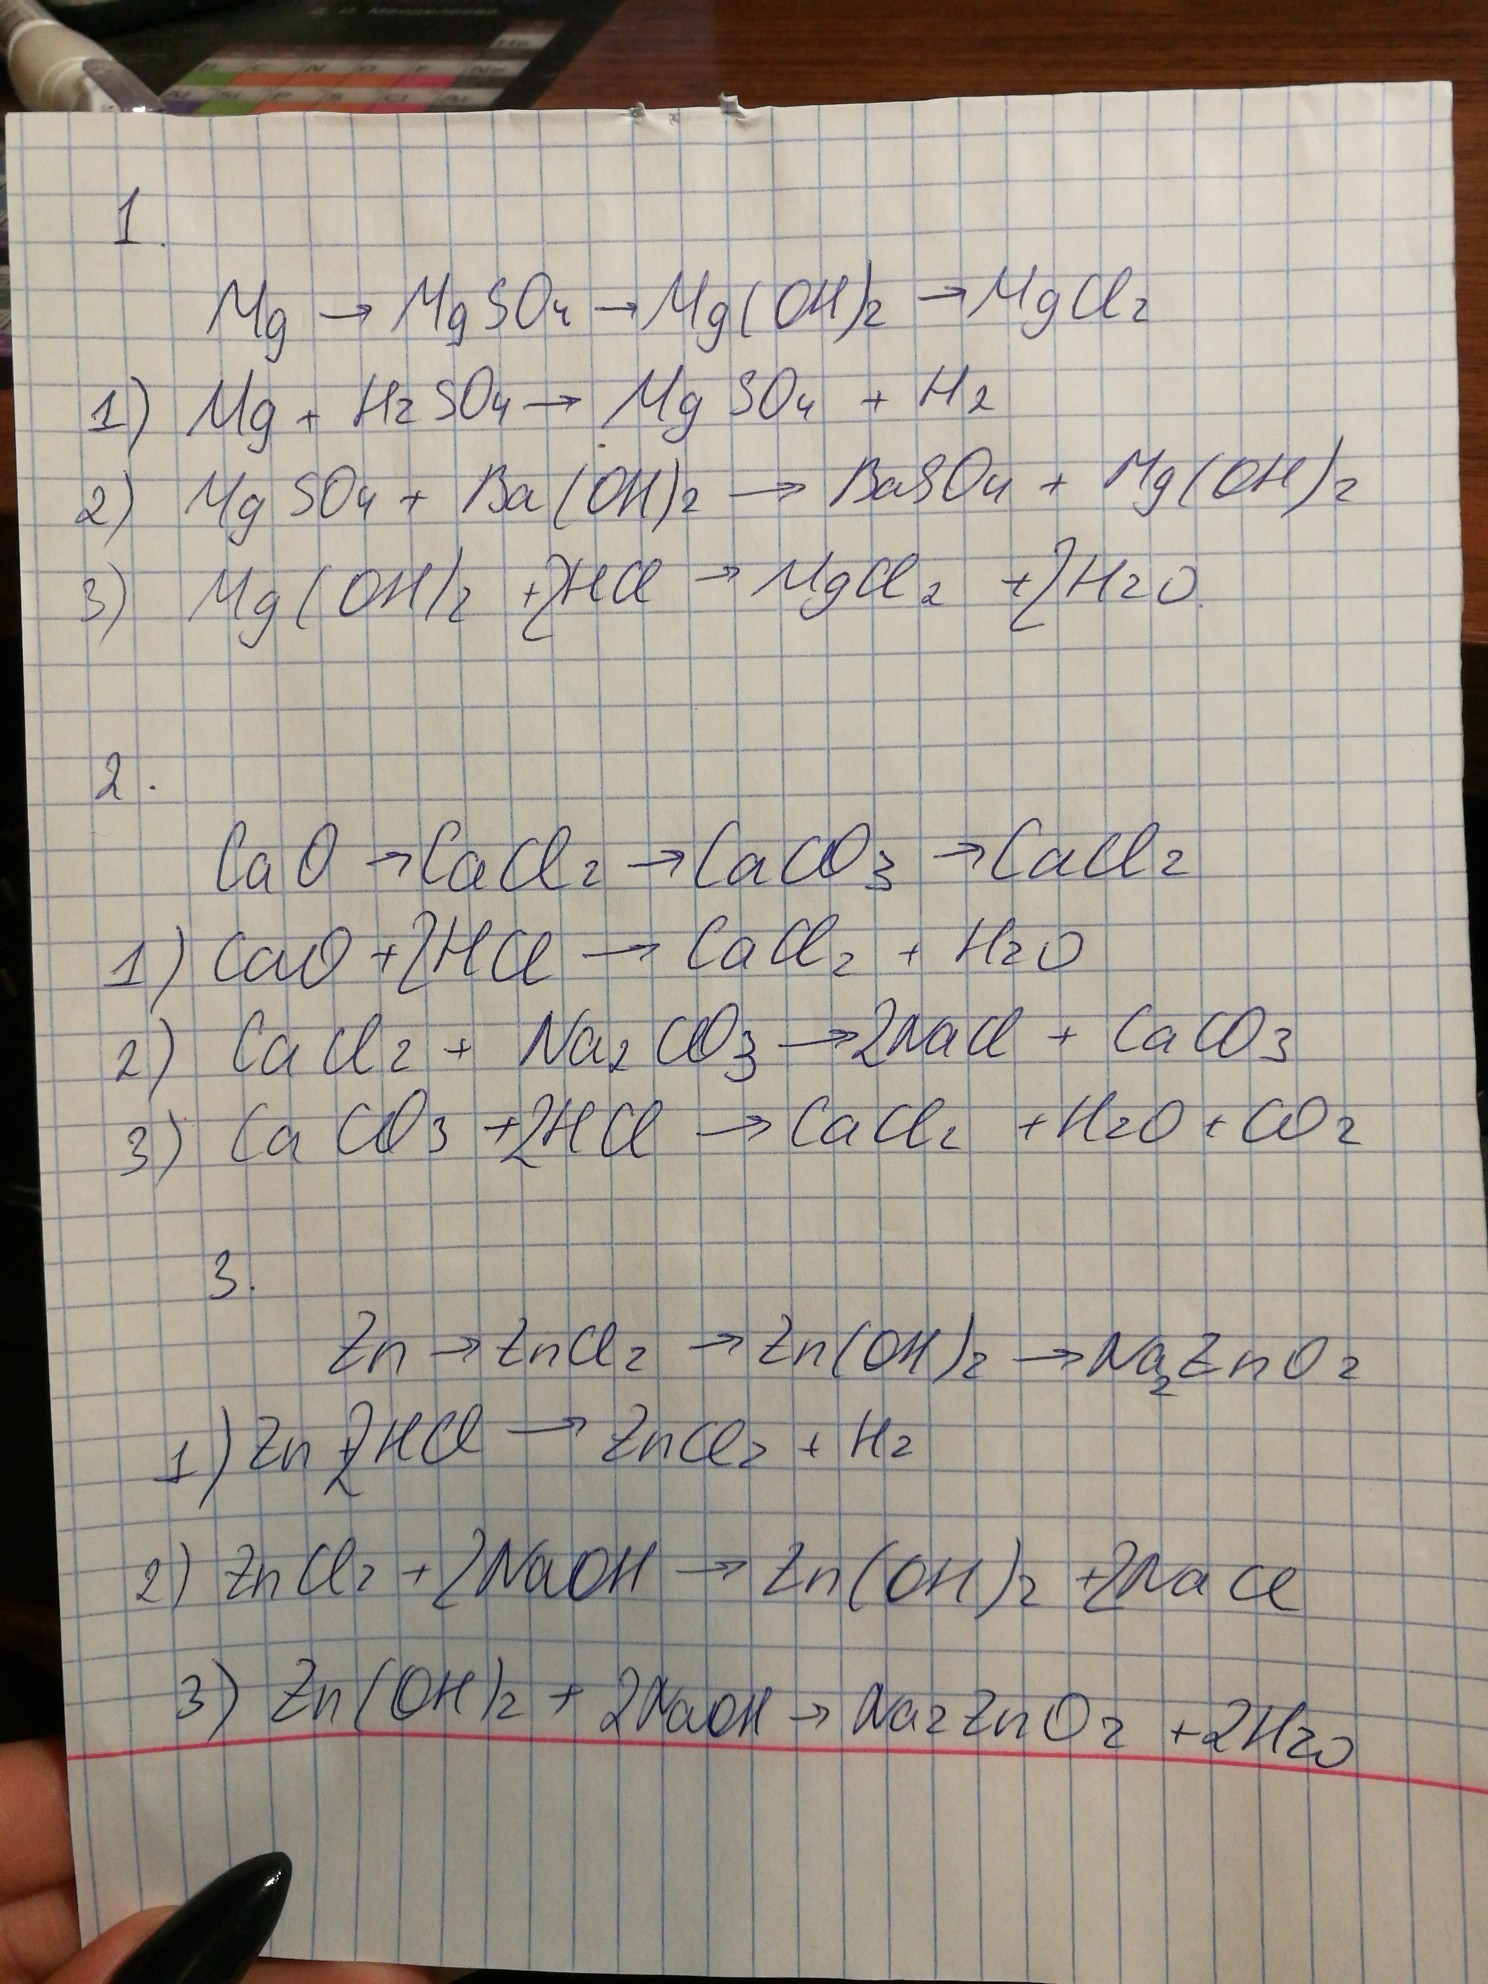 Д. И. Менделеева
1.
Mg → MgSO4 → Mg(OH)2 → MgCl2
1) Mg + H2SO4 → MgSO4 + H2
2) MgSO4 + Ba(OH)2 → BaSO4 + Mg(OH)2
3) Mg(OH)2 + 2HCl → MgCl2 + 2H2O.
2.
CaO → CaCl2 → CaCO3 → CaCl2
1) CaO + 2HCl → CaCl2 + H2O
2) CaCl2 + Na2CO3 → 2NaCl + CaCO3
3) CaCO3 + 2HCl → CaCl2 + H2O + CO2
3.
Zn → ZnCl2 → Zn(OH)2 → Na2ZnO2
1) Zn + 2HCl → ZnCl2 + H2
2) ZnCl2 + 2NaOH → Zn(OH)2 + 2NaCl
3) Zn(OH)2 + 2NaOH → Na2ZnO2 + 2H2O